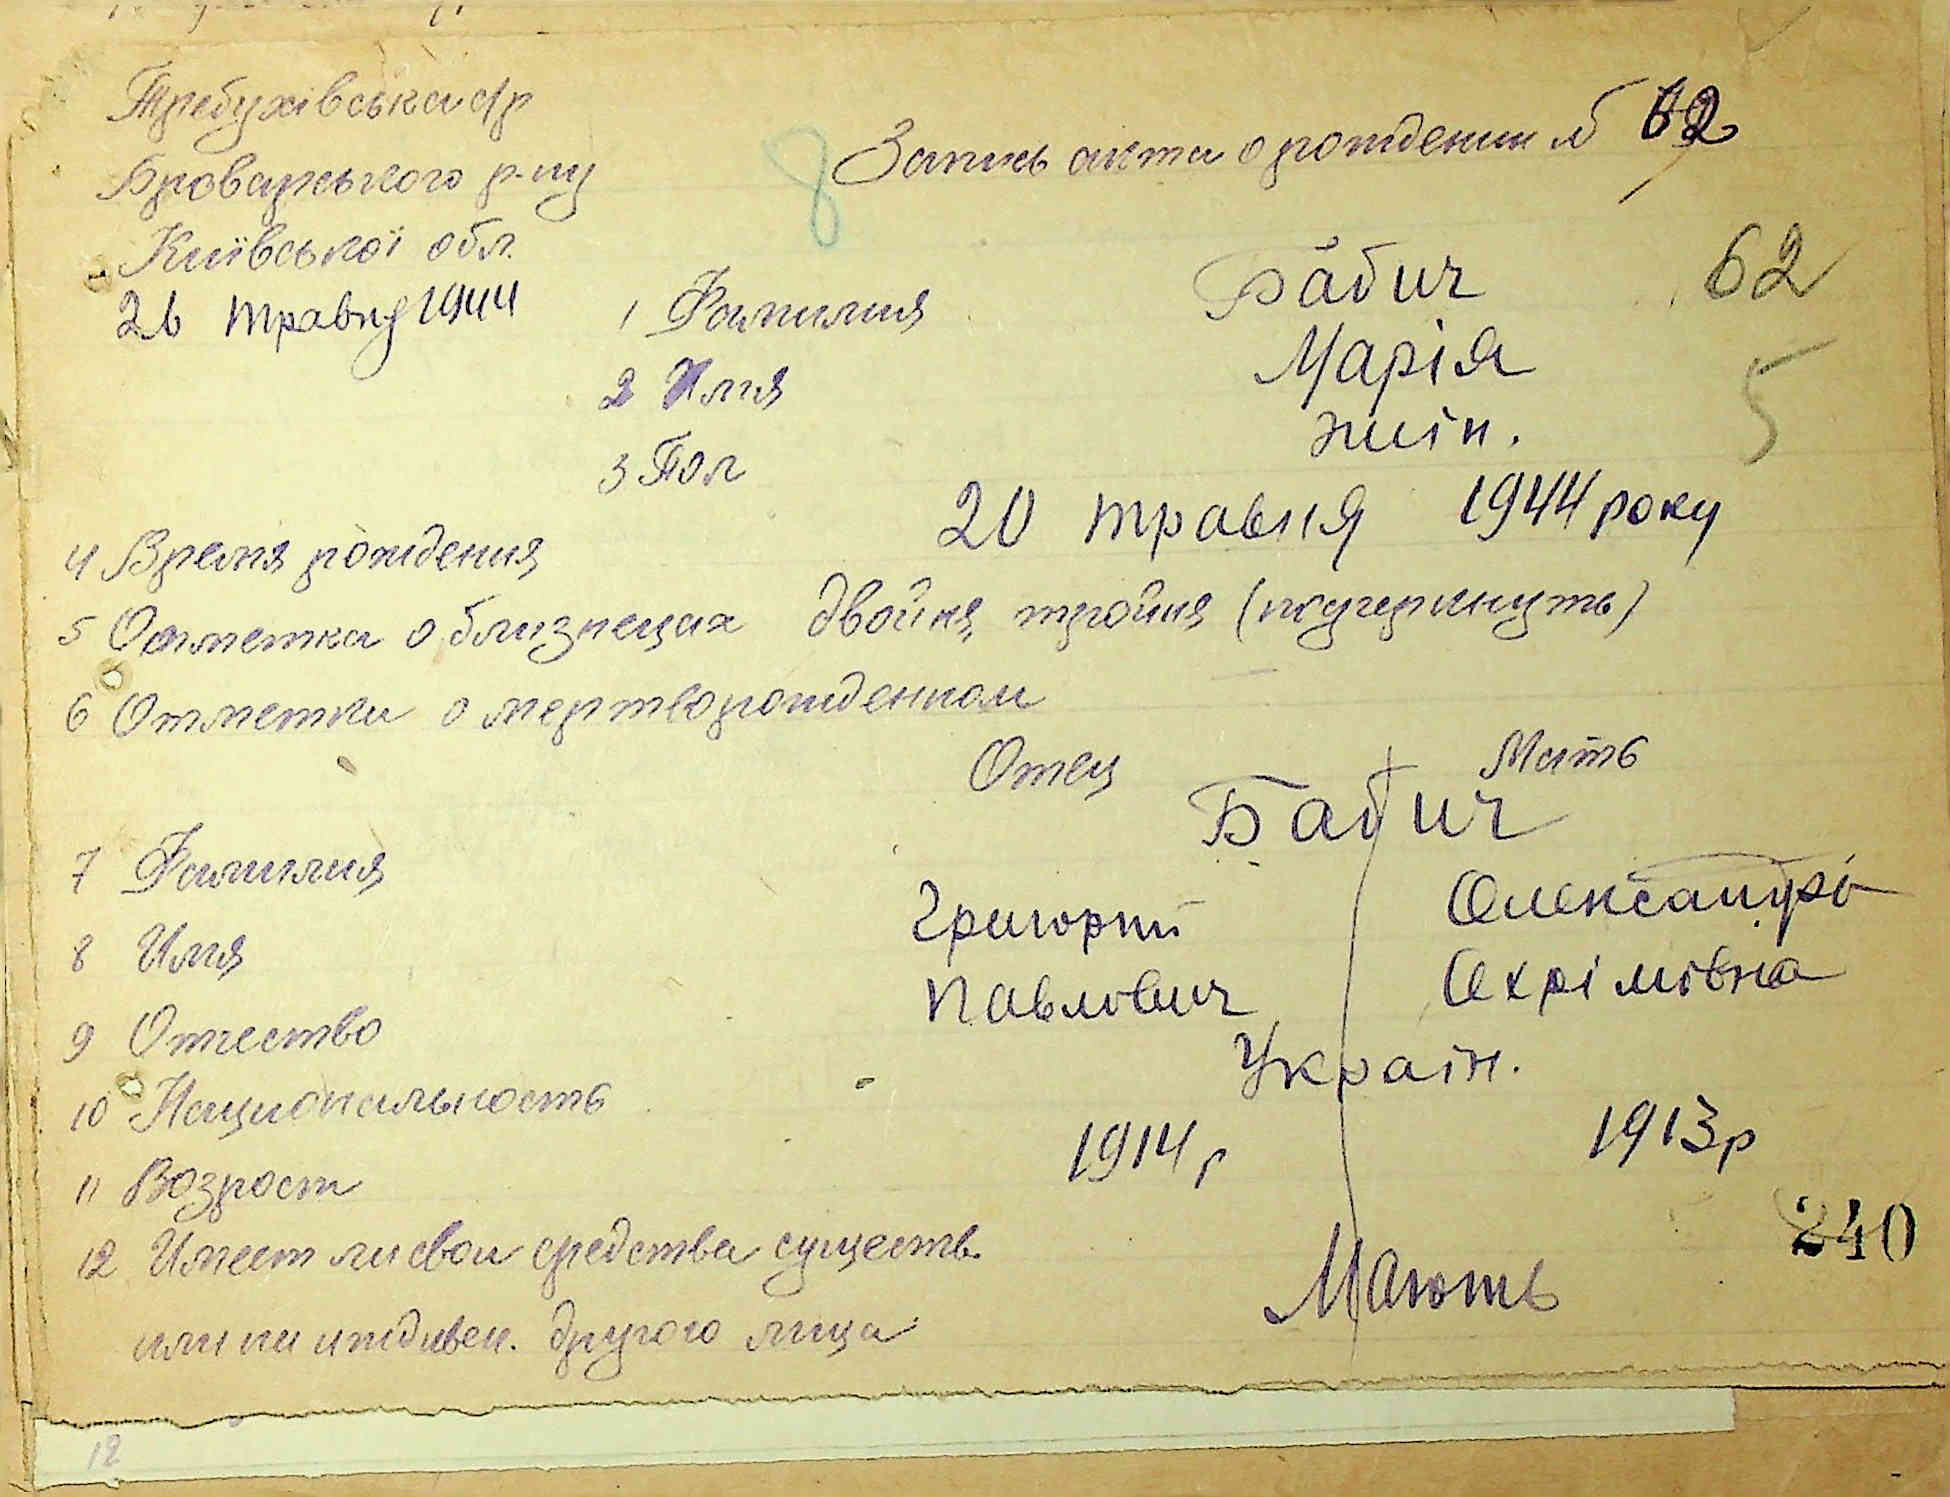 Требухівська с/р
Броварського р-ну
Київської обл.
26 травня 1944
8
Запись акта о рождении № 62
62
1 Фамилия Бабич
2 Имя Марія
5
3 Пол жін.
4 Время рождения 20 травня 1944 року
5 Отметка о близнецах двойня, тройня (подчеркнуть)
6 Отметки о мертворожденном
Отец Мать
7 Фамилия Бабич
8 Имя Григорій Олександра
9 Отчество Павлович Охрімовна
10 Национальность Україн.
11 Возрост 1914 р 1913 р
12 Имеет ли свои средства существ. Мають
или на иждивен. другого лица
240
12